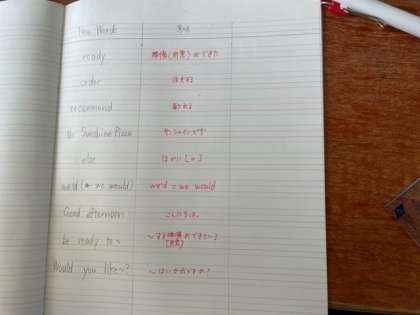 New Words 意味
ready 準備(用意)ができた
order 注文する
recommend 勧める
Sunshine Pizza サンシャインピザ
else ほかに[の]
we'd (← we would) we'd = we would
Good afternoon こんにちは。
be ready to ~ ～する準備ができている
[用意]
Would you like~? ～はいかがですか?